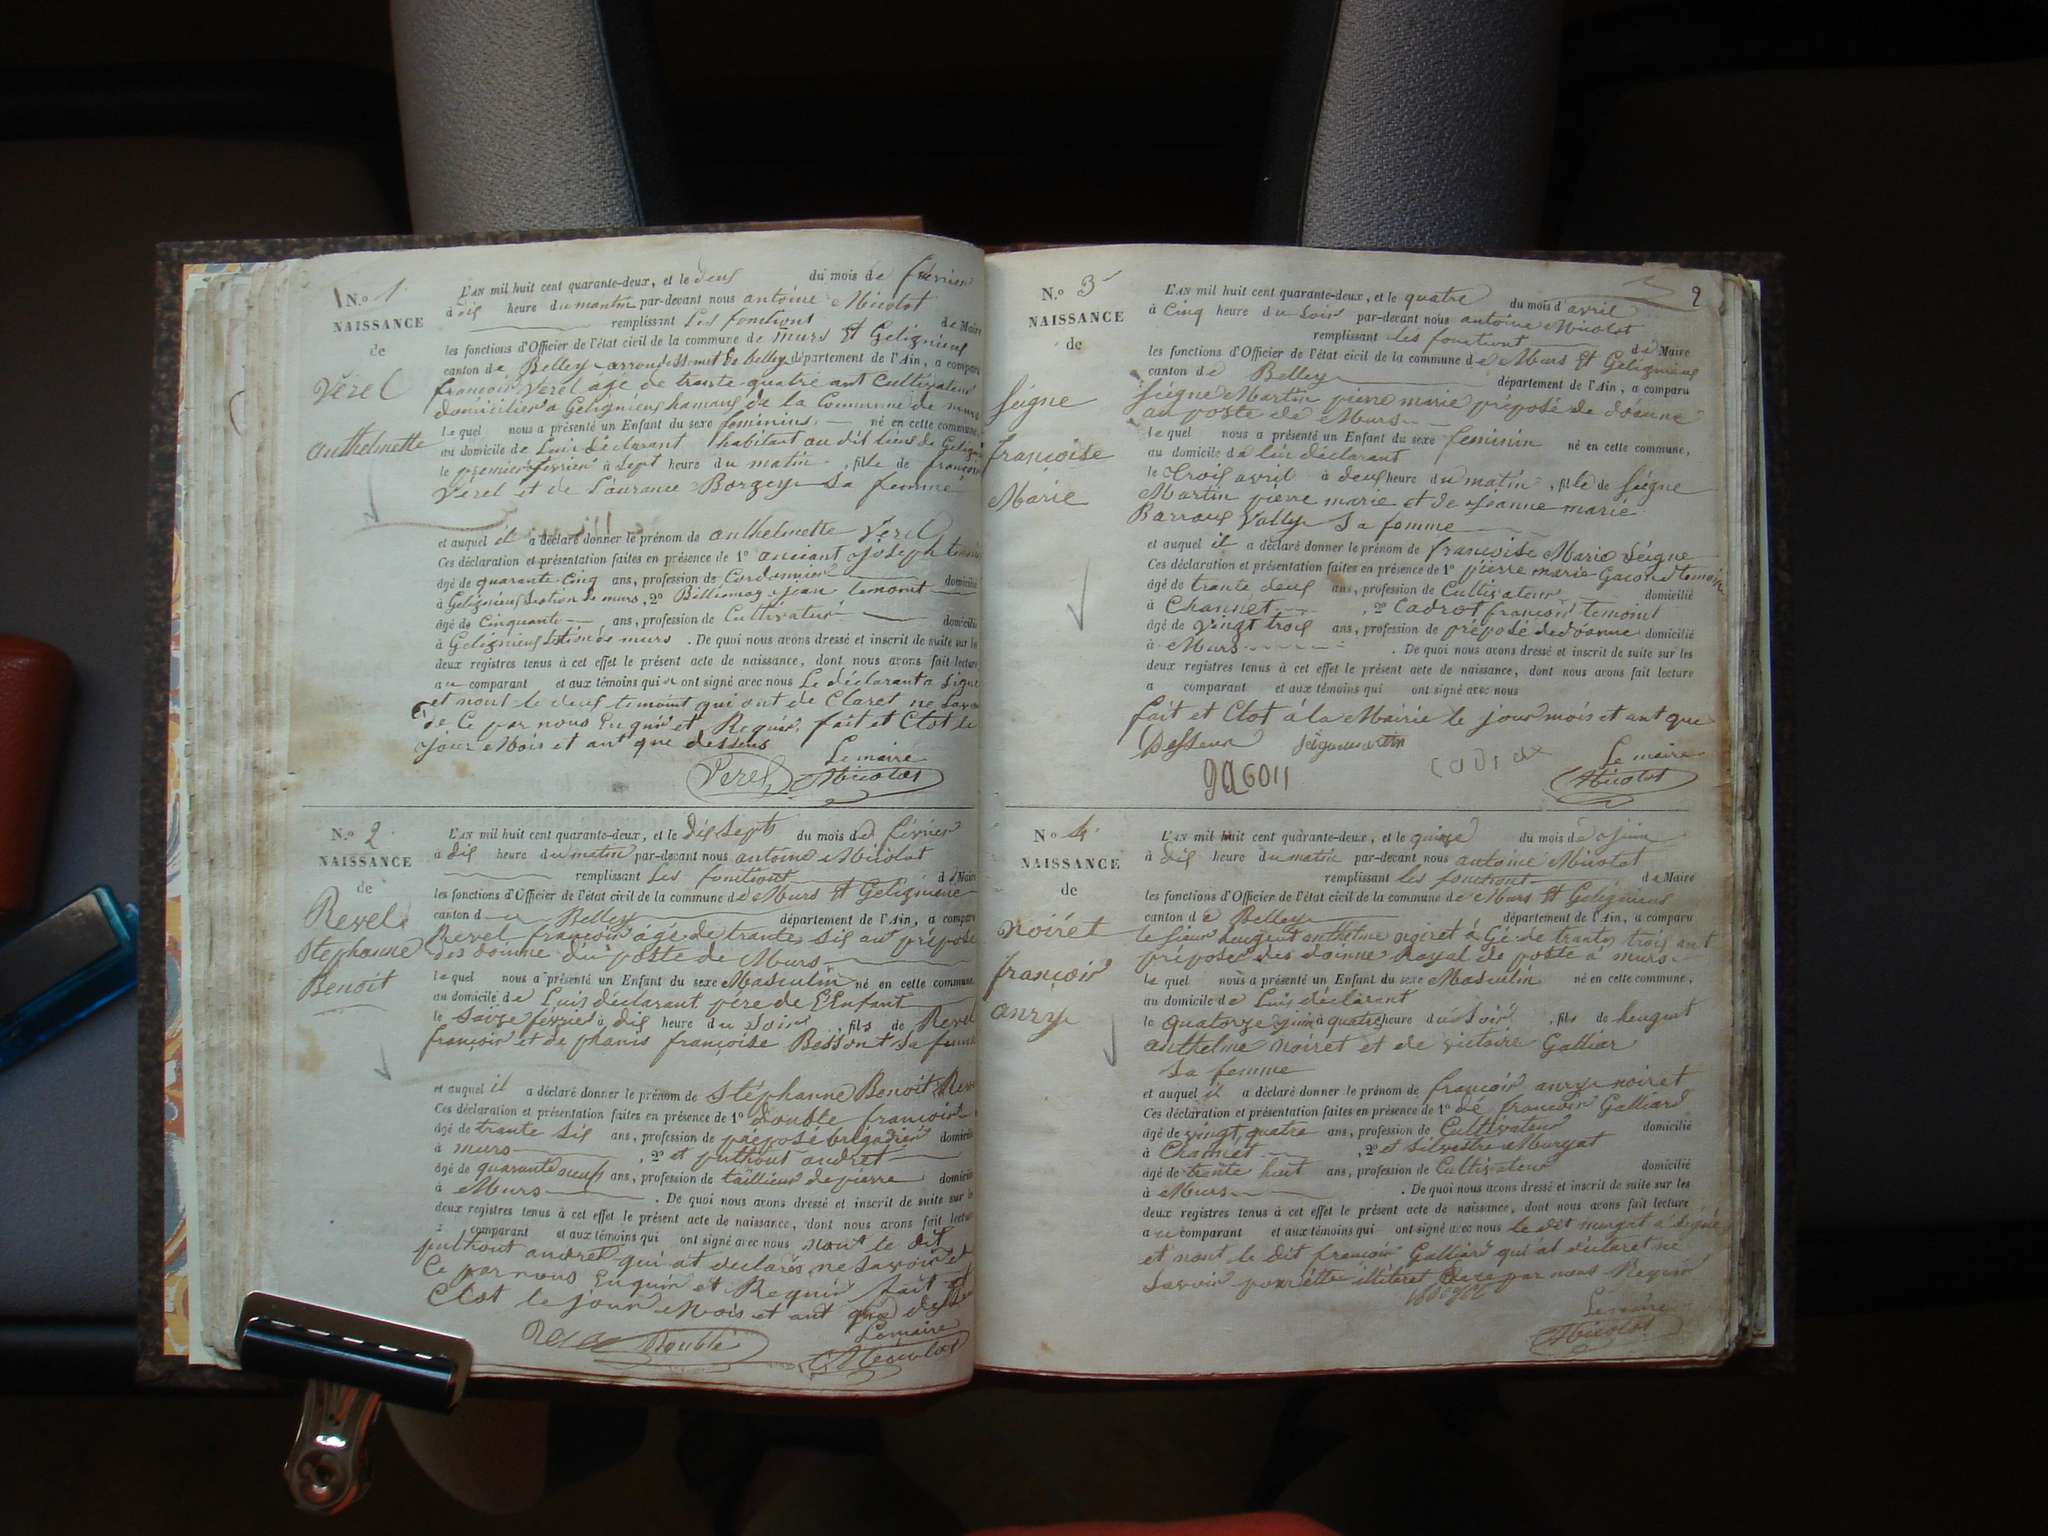 N.º 1.
NAISSANCE
de
Verel
anthelmette
L'AN mil huit cent quarante-deux, et le deus du mois de février
à dis heure du mantin par-devant nous antoine Micolot
remplissant Les fonctions de Maire
les fonctions d'Officier de l'état civil de la commune de murs et Gelignieux
canton de Belley arrondissment de belley département de l'Ain, a comparu
françois Verel agé de trante quatre ant Cultivateur
domicilier a Gelignieus hamaus de la Commune de murs
lequel nous a présenté un Enfant du sexe féminins né en cette commune,
au domicile de Luis déclarant habitant au dit liens de
le premier février à sept heure du matin, fille de françois
Verel et de Laurance Borgey Sa femme
et auquel il a déclaré donner le prénom de anthelmette Verel
Ces déclaration et présentation faites en présence de 1º anciant Joseph temoin
âgé de quarante cinq ans, profession de Cordonnier domicilié
à Gelignieus section de murs, 2º Billiemaz jean temoint
âgé de Cinquante ans, profession de Cultivateur domicilié
à Gelignieus murs. De quoi nous avons dressé et inscrit de suite sur les
deux registres tenus à cet effet le présent acte de naissance, dont nous avons fait lecture
au comparant et aux témoins qui ont signé avec nous Le déclarant a signé
et nont le deus temoint qui ont de Claret ne Savoir
de Ce par nous Enquis et Requis, fait et Clot le
jour Mois et ant que dessus
Le maire
Verel Micolot
N.º 2
NAISSANCE
de
Revel
Stephanne
Benoit
L'AN mil huit cent quarante-deux, et le dis septs du mois de février
à dis heure du matin par-devant nous antoine Micolot
remplissant Les fonctions de Maire
les fonctions d'Officier de l'état civil de la commune de Murs et Gelignieux
canton de Belley département de l'Ain, a comparu
Revel françois agé de trante sis ant préposé
des doinne du poste de Murs
lequel nous a présenté un Enfant du sexe Masculin né en cette commune,
au domicile de Luis déclarant père de L'Enfant
le saize février à dis heure du soir, fils de Revel
françois et de phanis françoise Bessont sa femme
et auquel il a déclaré donner le prénom de Stéphanne Benoit Revel
Ces déclaration et présentation faites en présence de 1º double françois
âgé de trante sis ans, profession de préposé brigadier domicilié
à murs, 2º et puthout andret
âgé de quarante neufs ans, profession de taillieur de pierre domicilié
à Murs. De quoi nous avons dressé et inscrit de suite sur les
deux registres tenus à cet effet le présent acte de naissance, dont nous avons fait lecture
comparant et aux témoins qui ont signé avec nous nont le dit
puthout andret qui at declarés ne savoir et
Ce par nous Enquis et Requis fait et
Clot le jour Mois et ant que dessus
Le maire
Revel Double Micolot
2
N.º 3
NAISSANCE
de
Seigne
françoise
Marie
L'AN mil huit cent quarante-deux, et le quatre du mois d'avril
à Cinq heure du soir par-devant nous antoine Micolot
remplissant les fonctiont de Maire
les fonctions d'Officier de l'état civil de la commune de Murs et Gelignieus
canton de Belley département de l'Ain, a comparu
Seigne Martin pierre marie préposé de doinne
au poste de Murs
lequel nous a présenté un Enfant du sexe feminin né en cette commune,
au domicile de lui déclarant
le trois avril à deus heure du matin, fille de Seigne
Martin pierre marie et de jeanne marie
Barraus Vally sa femme
et auquel il a déclaré donner le prénom de françoise Marie Seigne
Ces déclaration et présentation faites en présence de 1º pierre marie Gacond temoin
âgé de trante deus ans, profession de Cultivateur domicilié
à Channet, 2º Cadrot françois temoint
âgé de vingt trois ans, profession de préposé de doinne domicilié
à Murs. De quoi nous avons dressé et inscrit de suite sur les
deux registres tenus à cet effet le présent acte de naissance, dont nous avons fait lecture
a comparant et aux témoins qui ont signé avec nous
fait et Clot à la Mairie le jour mois et ant que
Dessus Seignemartin
Le maire
Micolot
N.º 4
NAISSANCE
de
noiret
françois
anry
L'AN mil huit cent quarante-deux, et le quinze du mois de juin
à dis heure du matin par-devant nous antoine Micolot
remplissant les fonctiont de Maire
les fonctions d'Officier de l'état civil de la commune de Murs et Gelignieus
canton de Belley département de l'Ain, a comparu
le sieur heugent anthelme noiret agé de trante trois ant
préposer des doinne Royal de poste à murs
lequel nous a présenté un Enfant du sexe Masculin né en cette commune,
au domicile de Luis déclarant
le quatorze juin à quatre heure du soir, fils de heugent
anthelme noiret et de victoire Galliar
sa femme
et auquel il a déclaré donner le prénom de françois anry noiret
Ces déclaration et présentation faites en présence de 1º de françois Galliard
âgé de vingt quatre ans, profession de Cultivateur domicilié
à Channet, 2º et silvestre Murgat
âgé de trante huit ans, profession de Cultivateur domicilié
à Murs. De quoi nous avons dressé et inscrit de suite sur les
deux registres tenus à cet effet le présent acte de naissance, dont nous avons fait lecture
au comparant et aux témoins qui ont signé avec nous le dit murgat a signé
et nont le dit françois Galliard qui at déclaret ne
savoir pour être illiteret par nous Requis
Le maire
Micolot